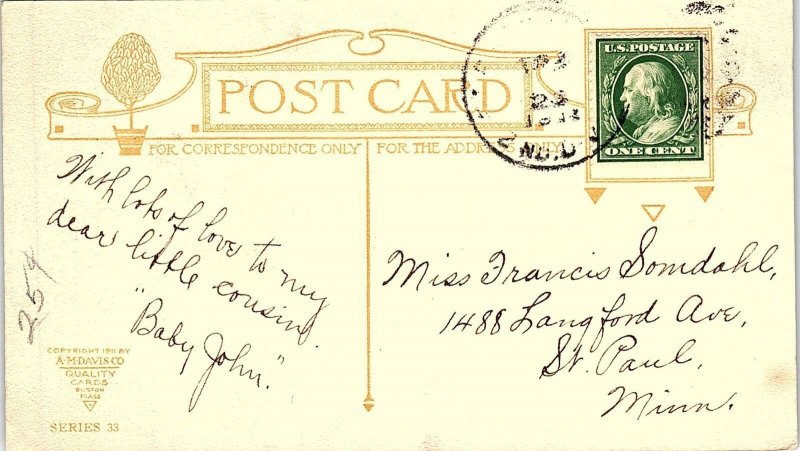 POST CARD
FOR CORRESPONDENCE ONLY
FOR THE ADDRESS ONLY
U.S. POSTAGE
ONE CENT
22
With lots of love to my
dear little cousin.
"Baby John."
Miss Francis Somdahl,
1488 Langford Ave,
St. Paul,
Minn.
254
COPYRIGHT 1911 BY
A·M·DAVIS CO
QUALITY
CARDS
BOSTON
MASS
SERIES 33